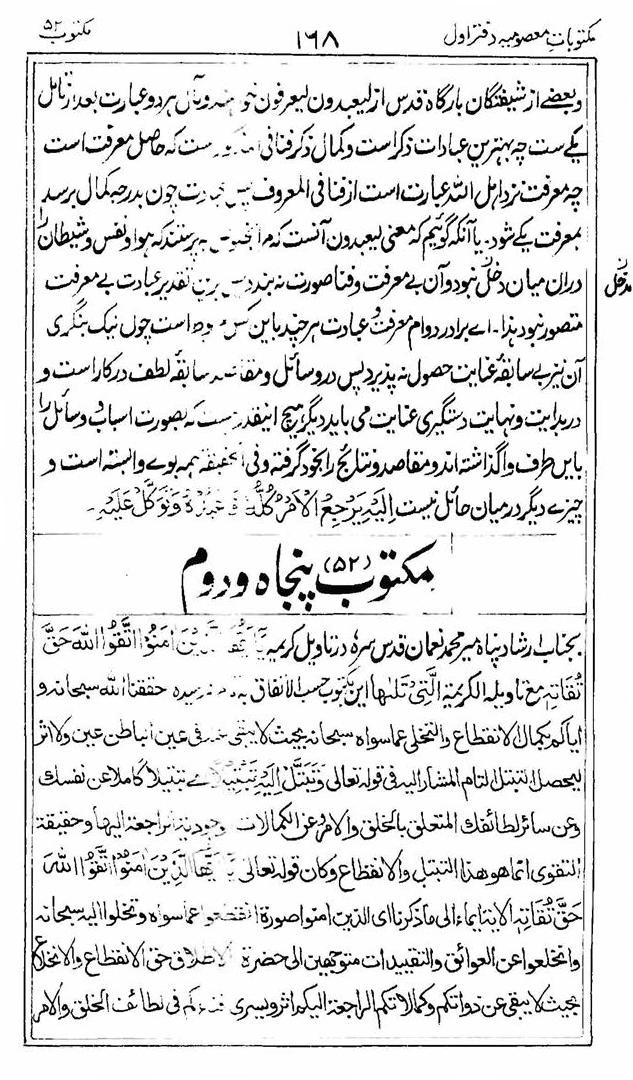 مکتوبات معصومیہ دفتر اول ۱۶۸ مکتوب ۵۲
وبعضے از شیفتگان بارگاہ قدس از لیعبدون لیعرفون وبآل ہر دو عبارت بعد از تأمل
یکے ست چہ بہترین عبادات ذکر است وکمال ذکر فنا فی ست کہ حاصل معرفت است
چہ معرفت نزد اہل اللہ عبارت است از فنا فی المعروف پس عبادت چون بدرجہ کمال برسد
بمعرفت یکے شود۔ یا آنکہ گوئیم کہ معنی لیعبدون آنست کہ مرا بپرستند کہ ہوا ونفس وشیطان را
دران میان دخل نبود وآن بے معرفت وفنا صورت نہ بندد پس برین تقدیر عبادت بے معرفت
مدخل
متصور نبود ہذا۔ اے برادر دوام معرفت وعبادت ہر چند باین است چون نیک بنگری
آن نیز بے سابقۂ عنایت حصول نہ پذیرد پس در وسائل و مقاصد سابقۂ لطف درکار است و
در بدایت و نہایت دستگیری عنایت می باید دیگر ہیچ اینقدر ہست کہ بصورت اسباب و وسائل را
باین طرف واگذاشتہ اند و مقاصد و نتائج را بخود گرفتہ وفی الحقیقۃ ہمہ بوے وابستہ است و
چیزے دیگر درمیان حائل نیست اِلَیْہِ یَرْجِعُ الْاَمْرُ کُلُّہٗ فَاعْبُدْہُ وَتَوَکَّلْ عَلَیْہِ۔
مکتوب (۵۲) پنجاہ و دوم
بجناب ارشاد پناہ میر محمد نعمان قدس سرہ در تاویل کریمہ یٰٓاَیُّھَا الَّذِیْنَ اٰمَنُوا اتَّقُوا اللہَ حَقَّ
تُقَاتِہٖ مع تاویلہ الکریمۃ الَّتِیْ تَلَتْھَا این مکتوب حسب الاتفاق رسیدہ حققنا اللہ سبحانہ و
ایاکم بکمال الانقطاع والتخلی عما سواہ سبحانہ بحیث لا یبقی فی عین الباطن عین ولا اثر
لیحصل التبتل التام المشار الیہ فی قولہ تعالی وَتَبَتَّلْ اِلَیْہِ تَبْتِیْلًا اے تبتیلا کاملا عن نفسک
وعن سائر لطائفک المتعلق بالخلق والامر وعن الکمالات الوجودیۃ الراجعۃ الیہا وحقیقۃ
التقوی انما هو هذا التبتل والانقطاع وکان قولہ تعالی یٰٓاَیُّھَا الَّذِیْنَ اٰمَنُوا اتَّقُوا اللہَ
حَقَّ تُقَاتِہٖ الایۃ ایماء الی ما ذکرنا ای الذین امنوا صورۃ انقطعوا عما سواہ وتخلوا الیہ سبحانہ
وانخلعوا عن العوائق والتقییدات متوجھین الی حضرۃ الاطلاق حق الانقطاع والانخلاع
بحیث لا یبقی عن ذواتکم وکمالاتکم الراجعۃ الیکم اثر ویسری فی لطائف الخلق والامر